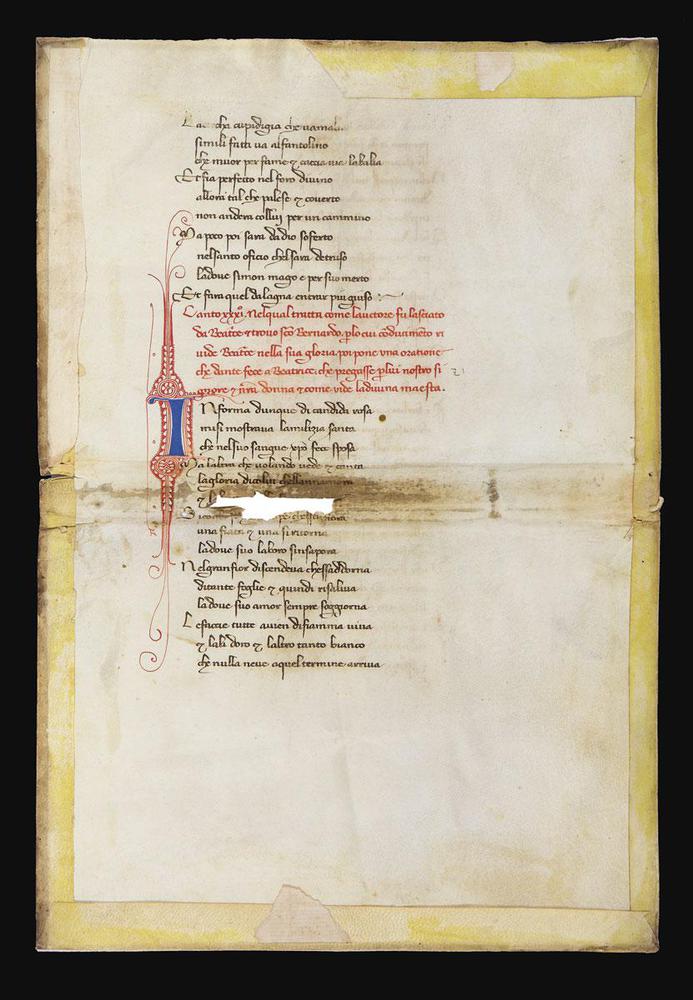 La che cupidigia che vama
simili fatti va alfantolino
che muor per fame ⁊ caccia via labalia
Et fia perfecto nel foro divino
allora tal che palese ⁊ coverto
non andera collui per un cammino
Ma poco poi sara dadio soferto
nelsanto oficio chelsara detruso
ladove simon mago e per suo merto
Et fara quel dalagna entrar piu giuso
Canto xxxi. Nelqual tratta come lauctore fu lasciato
da Beatrice ⁊ trovo sco Bernardo. plo cui coducimeto ri
vide Beatrice nella sua gloria poi pone una oratione
che dante fece a Beatrice. che pregasse plui nostro si
gnore ⁊ nra donna ⁊ come vide ladivina maesta.
INforma dunque di candida rosa
misi mostrava lamilizia santa
che nelsuo sangue xpo fece sposa
Ma laltra che volando vede ⁊ canta
lagloria dicolui chellannamora
⁊ la
una fiata ⁊ una siritorna
ladove suo laboro sinsapora
Nelgranfior discendeva chessaddorna
ditante foglie ⁊ quindi risaliva
ladove suo amor sempre soggiorna
Lefaccie tutte avien difiamma viva
⁊ lali doro ⁊ laltro tanto bianco
che nulla neve aquel termine arriva